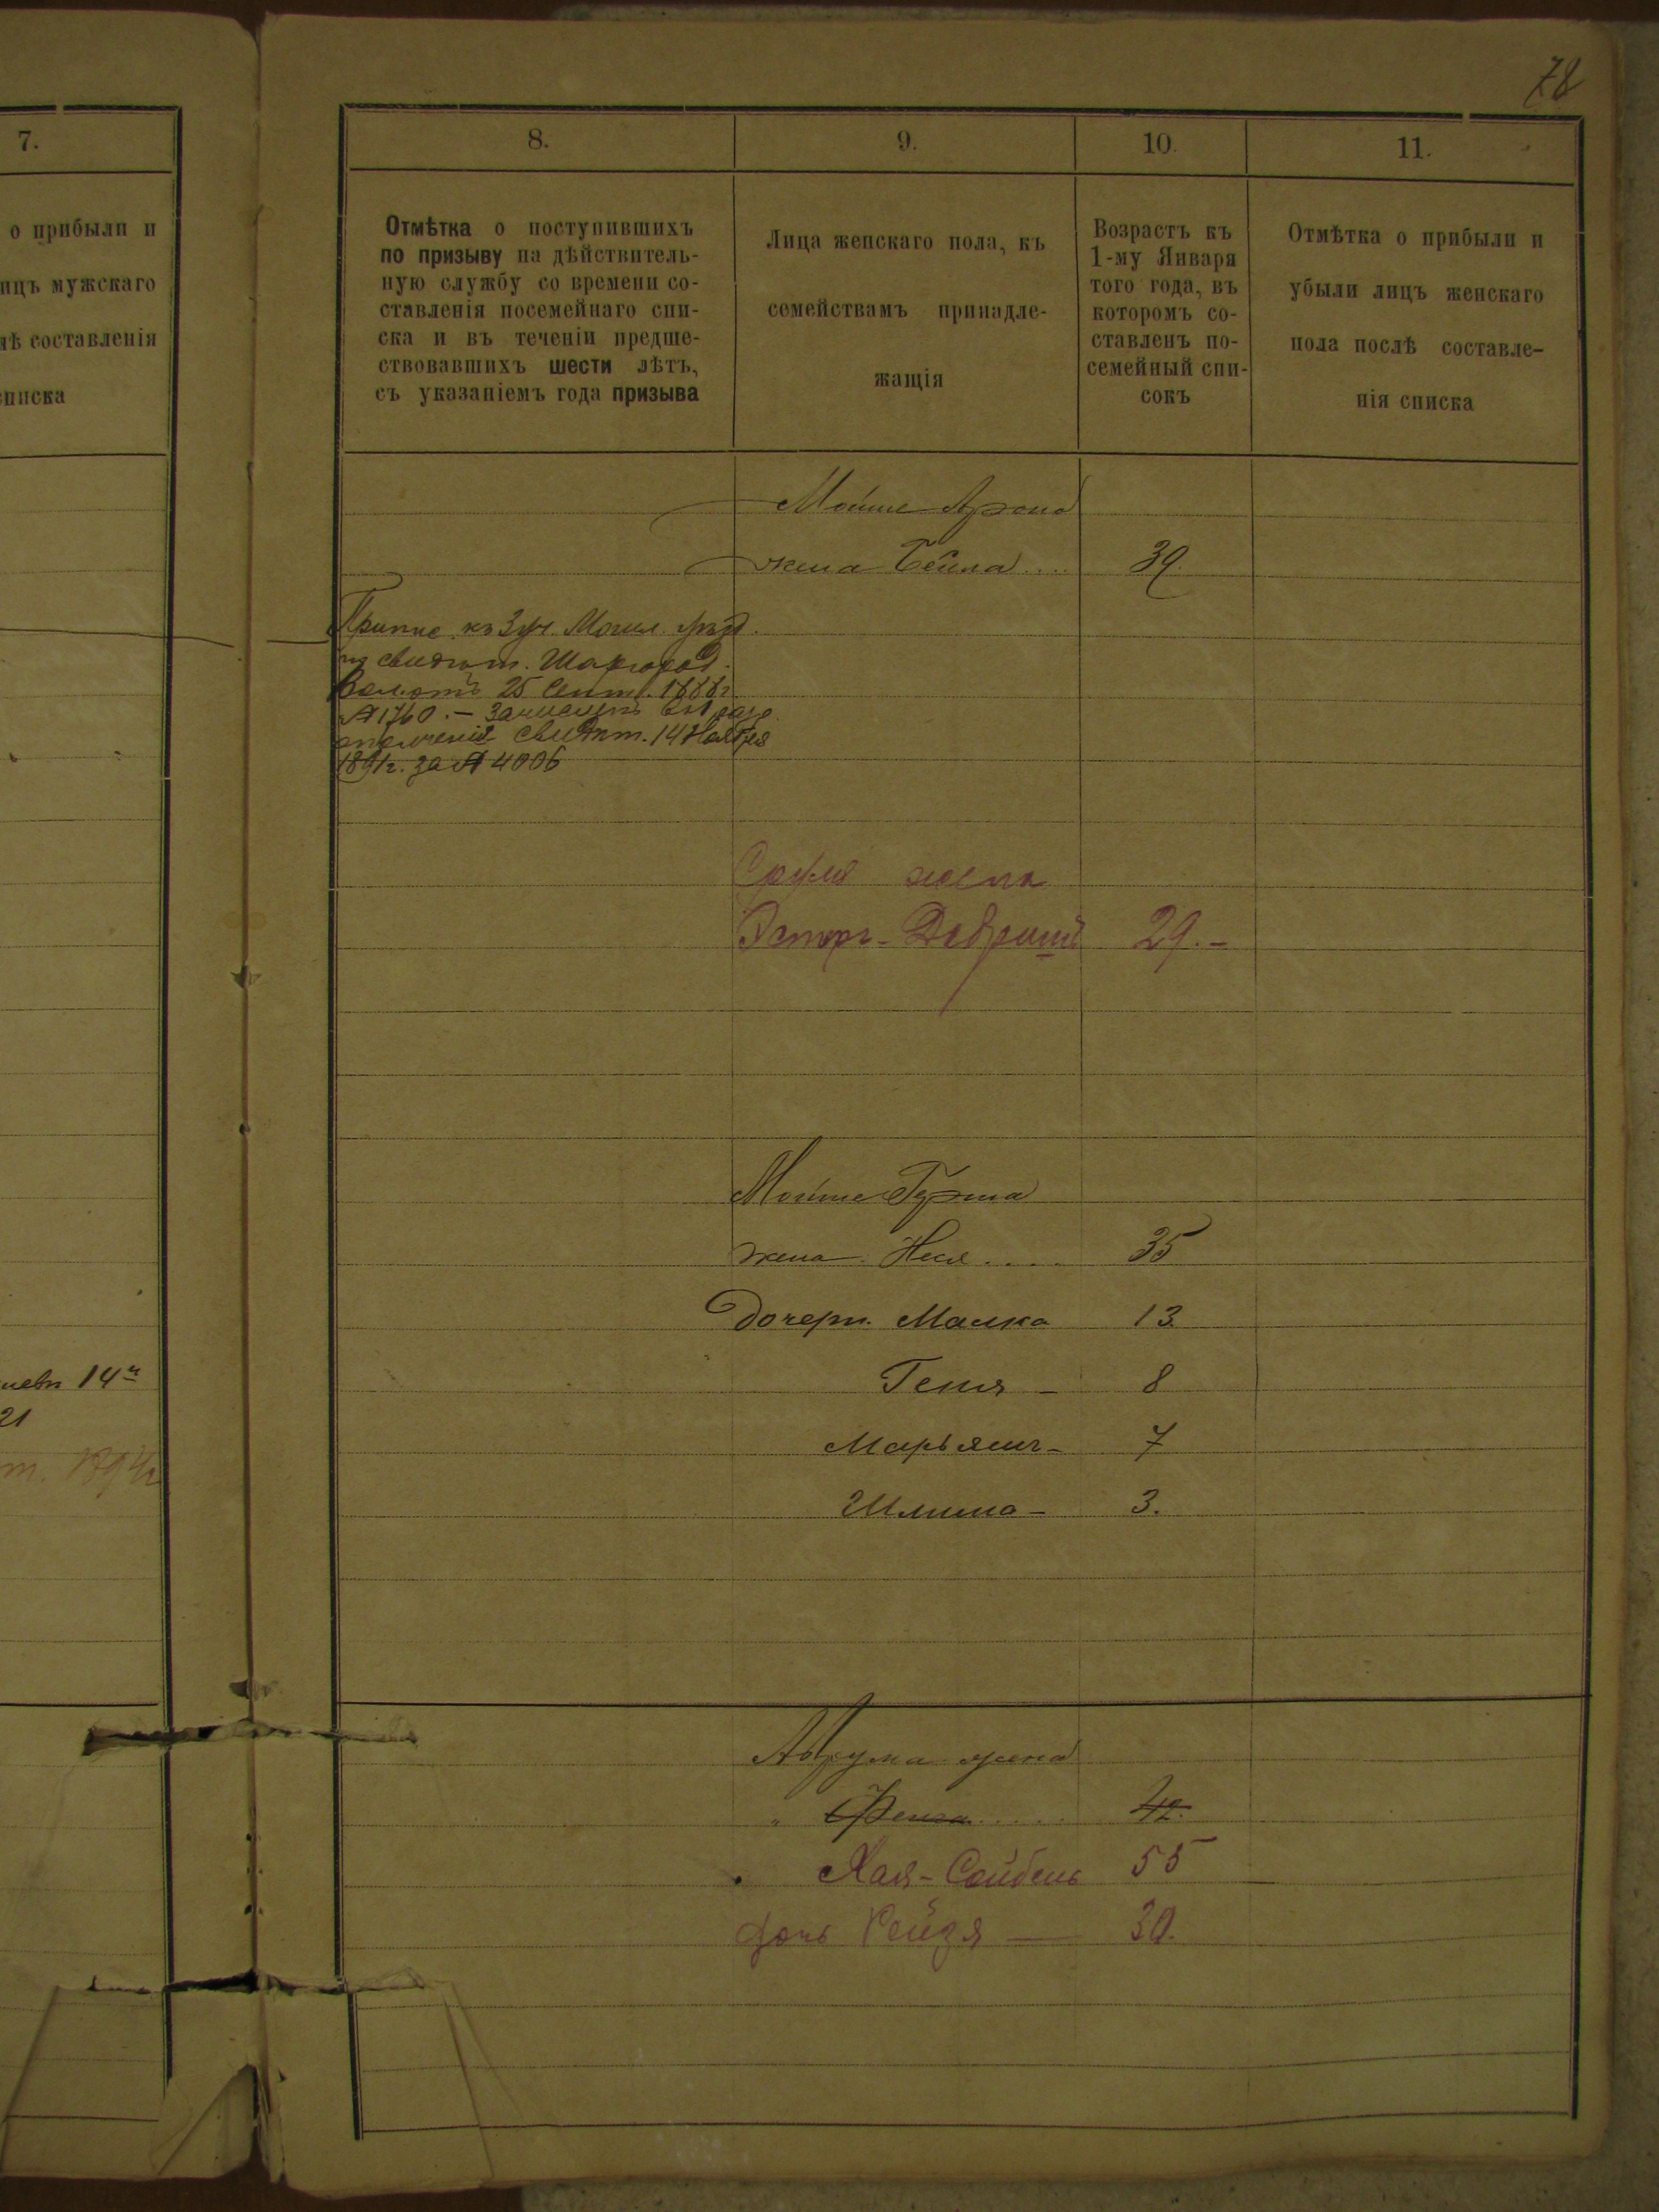 78
7.
о прибыли и
ицъ мужскаго
лѣ составленія
списка
невъ 14
21
т. 1894г
8.
Отмѣтка о поступившихъ
по призыву на дѣйствитель-
ную службу со времени со-
ставленія посемейнаго спи-
ска и въ теченіи предше-
ствовавшихъ шести лѣтъ,
съ указаніемъ года призыва
9.
Лица женскаго пола, къ
семействамъ принадле-
жащія
10.
Возрастъ къ
1-му Января
того года, въ
которомъ со-
ставленъ по-
семейный спи-
сокъ
11.
Отмѣтка о прибыли и
убыли лицъ женскаго
пола послѣ составле-
нія списка
Мойше Арона
жена Бейла .... 39.
Припис. къ 3 уч. Могил. уѣзд.
свидѣт. Шаргород.
Волости 25 Сент. 1888г.
№ 1760. — Зачисленъ
ополченія свидѣт. 14 Ноября
1891г. за № 4006
Сруля жена
Эстер- 29.-
Мойше Герша
жена Неся .... 35
дочери Малка 13
Геня - 8
Марьям - 7
3.
Аврума жена
" 42.
Хая-Сойбель 55
дочь Рейзя — 30.